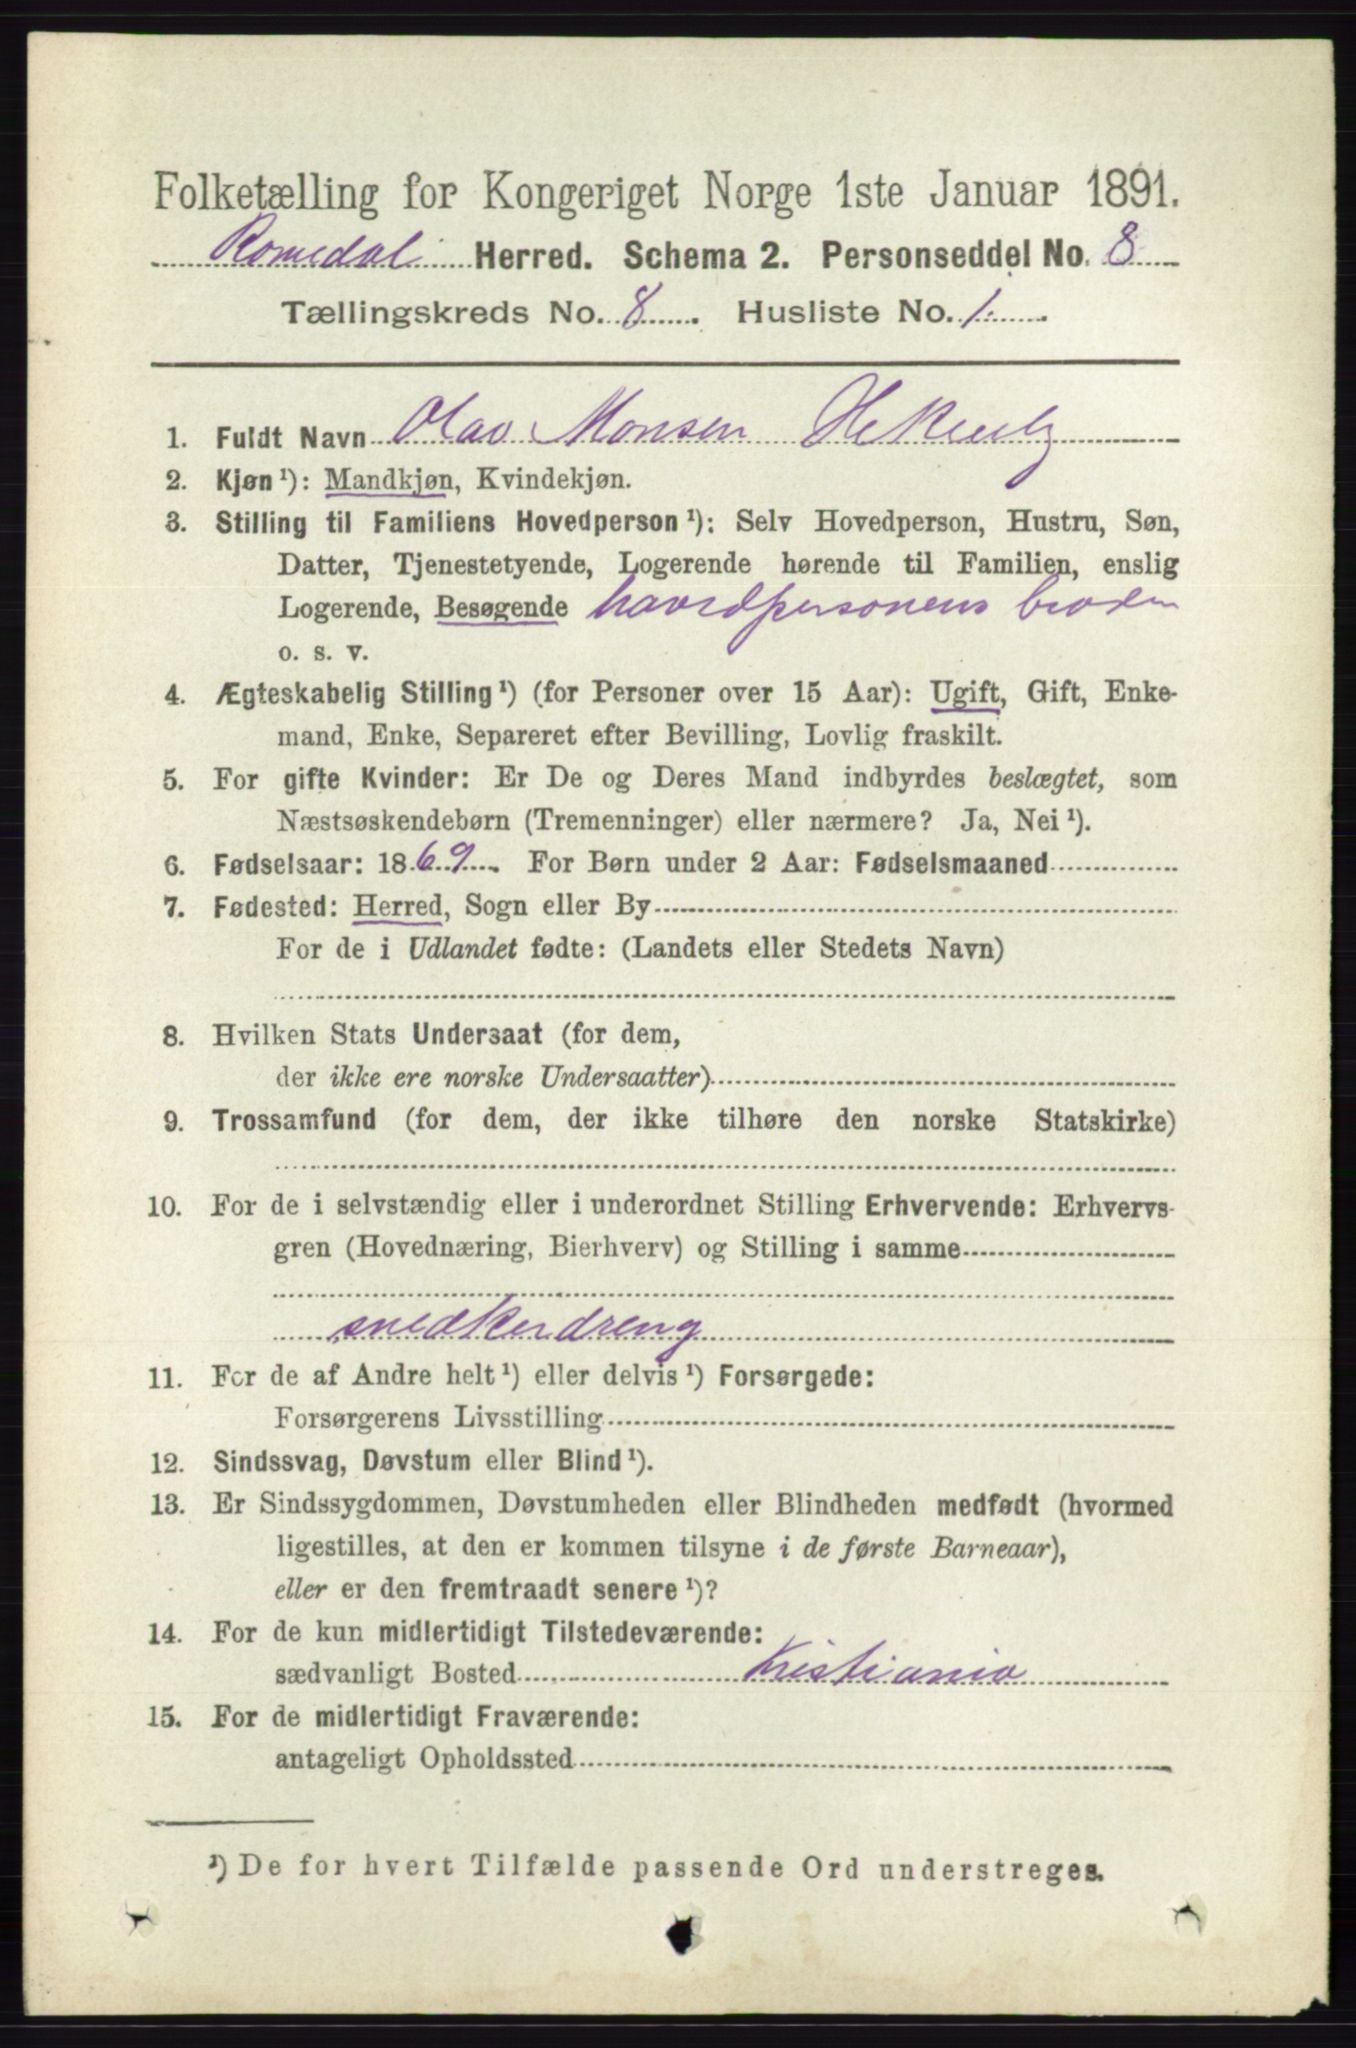 Folketælling for Kongeriget Norge 1ste Januar 1891.
Romedal Herred. Schema 2. Personseddel No. 8
Tællingskreds No. 8. Husliste No. 1.
1. Fuldt Navn Olav Monsen
2. Kjøn ¹): Mandkjøn, Kvindekjøn.
3. Stilling til Familiens Hovedperson ¹): Selv Hovedperson, Hustru, Søn,
Datter, Tjenestetyende, Logerende hørende til Familien, enslig
Logerende, Besøgende hovedpersonens broder
o. s. v.
4. Ægteskabelig Stilling ¹) (for Personer over 15 Aar): Ugift, Gift, Enke-
mand, Enke, Separeret efter Bevilling, Lovlig fraskilt.
5. For gifte Kvinder: Er De og Deres Mand indbyrdes beslægtet, som
Næstsøskendebørn (Tremenninger) eller nærmere? Ja, Nei ¹).
6. Fødselsaar: 1869. For Børn under 2 Aar: Fødselsmaaned
7. Fødested: Herred, Sogn eller By
For de i Udlandet fødte: (Landets eller Stedets Navn)
8. Hvilken Stats Undersaat (for dem,
der ikke ere norske Undersaatter)
9. Trossamfund (for dem, der ikke tilhøre den norske Statskirke)
10. For de i selvstændig eller i underordnet Stilling Erhvervende: Erhvervs-
gren (Hovednæring, Bierhverv) og Stilling i samme
snedkerdreng
11. For de af Andre helt ¹) eller delvis ¹) Forsørgede:
Forsørgerens Livsstilling
12. Sindssvag, Døvstum eller Blind ¹).
13. Er Sindssygdommen, Døvstumheden eller Blindheden medfødt (hvormed
ligestilles, at den er kommen tilsyne i de første Barneaar),
eller er den fremtraadt senere ¹)?
14. For de kun midlertidigt Tilstedeværende:
sædvanligt Bosted Kristiania
15. For de midlertidigt Fraværende:
antageligt Opholdssted
¹) De for hvert Tilfælde passende Ord understreges.